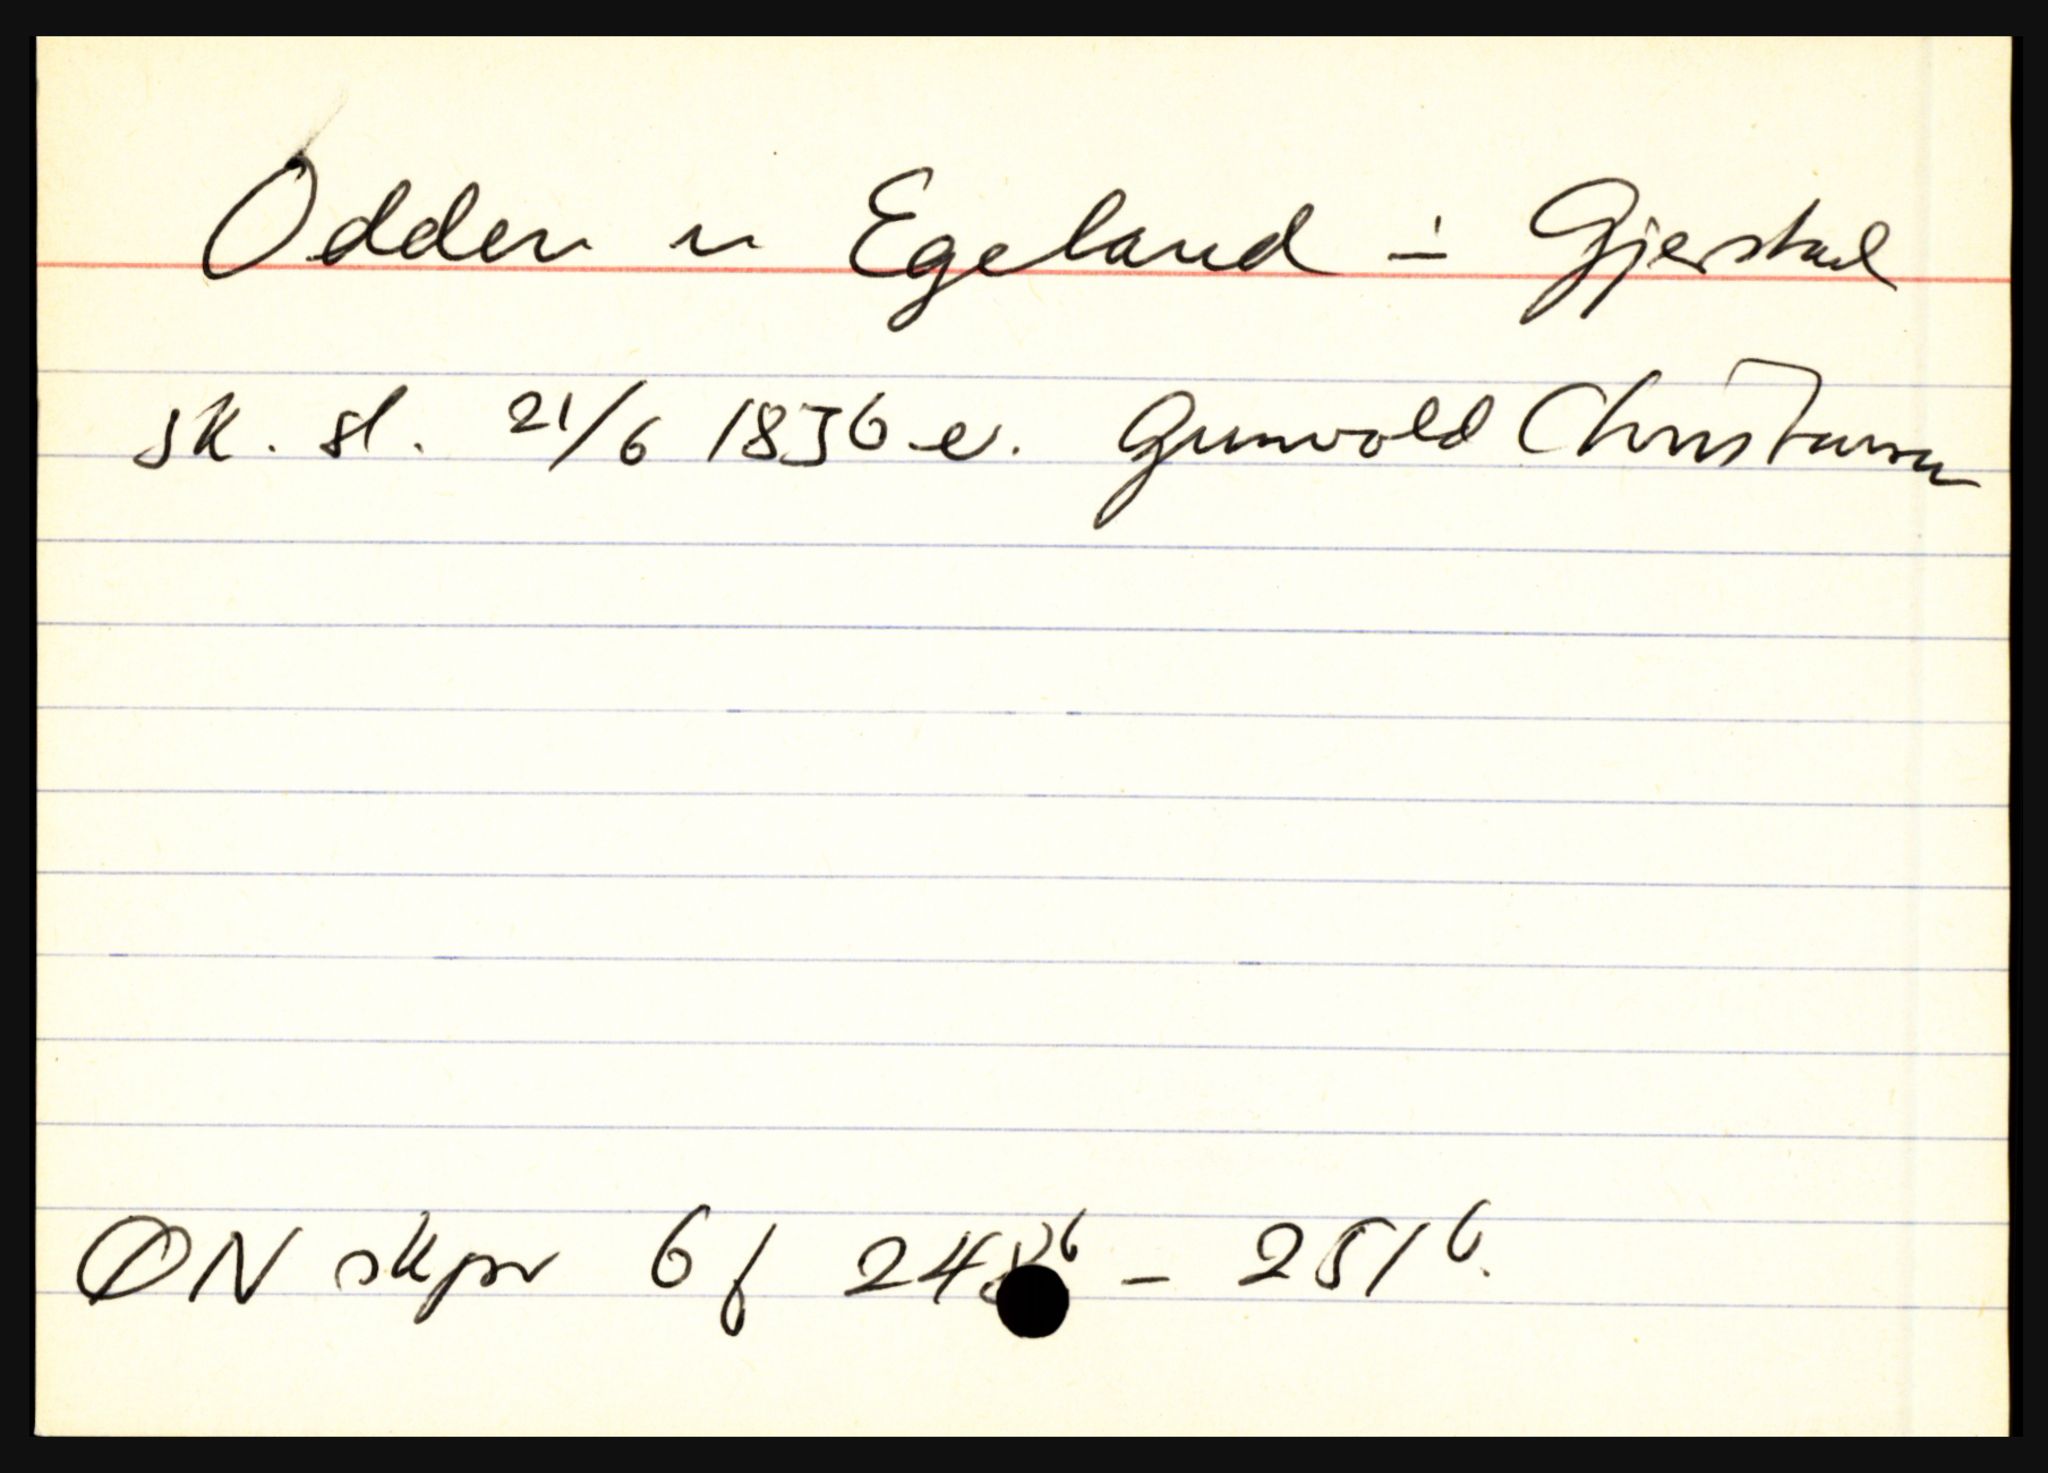 Odden u Egeland i Gjerstad
sk. sl. 21/6 1836 e. Gunvold Christensen
ØN skpr 6 f 248b - 251b.